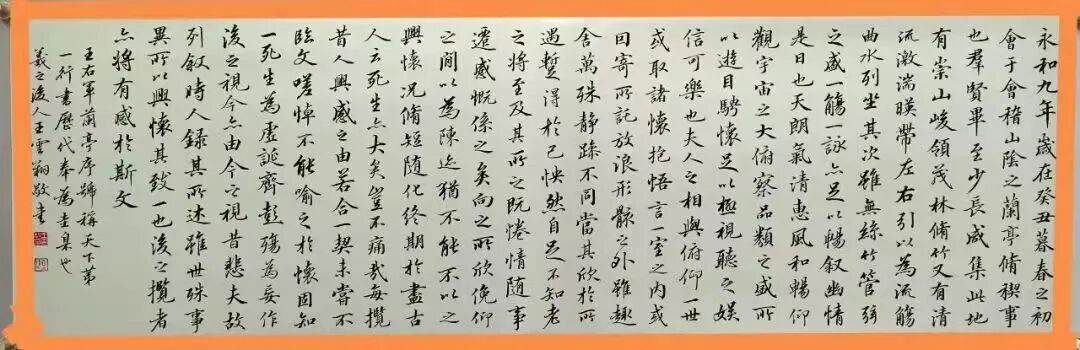 永和九年歲在癸丑暮春之初
會于會稽山陰之蘭亭脩禊事
也羣賢畢至少長咸集此地
有崇山峻領茂林脩竹又有清
流激湍暎帶左右引以為流觴
曲水列坐其次雖無絲竹管弦
之盛一觴一詠亦足以暢叙幽情
是日也天朗氣清惠風和暢仰
觀宇宙之大俯察品類之盛所
以遊目騁懷足以極視聽之娛
信可樂也夫人之相與俯仰一世
或取諸懷抱悟言一室之內或
因寄所託放浪形骸之外雖趣
舍萬殊静躁不同當其欣於所
遇蹔得於己怏然自足不知老
之將至及其所之既惓情隨事
遷感慨係之矣向之所欣俛仰
之閒以為陳迹猶不能不以之
興懷況脩短随化終期於盡古
人云死生亦大矣豈不痛哉每攬
昔人興感之由若合一契未嘗不
臨文嗟悼不能喻之於懷固知
一死生為虛誕齊彭殤為妄作
後之視今亦由今之視昔悲夫故
列叙時人録其所述雖世殊事
異所以興懷其致一也後之攬者
亦將有感於斯文
王右軍蘭亭序號稱天下第
一行書歷代奉為圭臬也
羲之後人王雲翔敬書